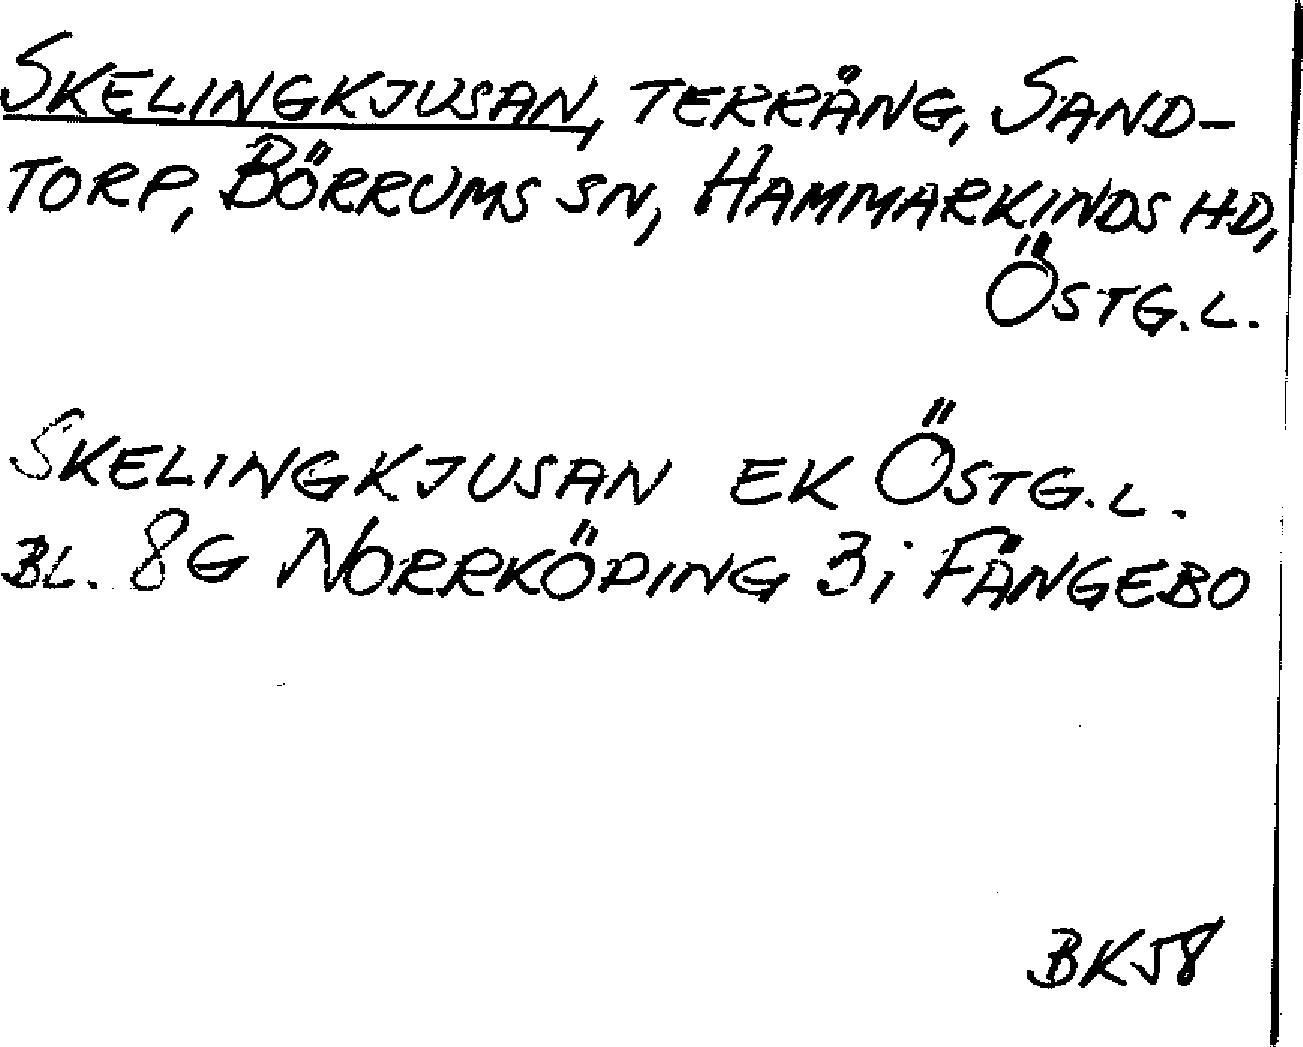 SKELINGKJUSAN, TERRÄNG, SAND-
TORP, BÖRRUMS SN, HAMMARKINDS HD,
ÖSTG.L.
SKELINGKJUSAN EK ÖSTG.L.
BL. 8G NORRKÖPING 3i FÅNGEBO
BK58